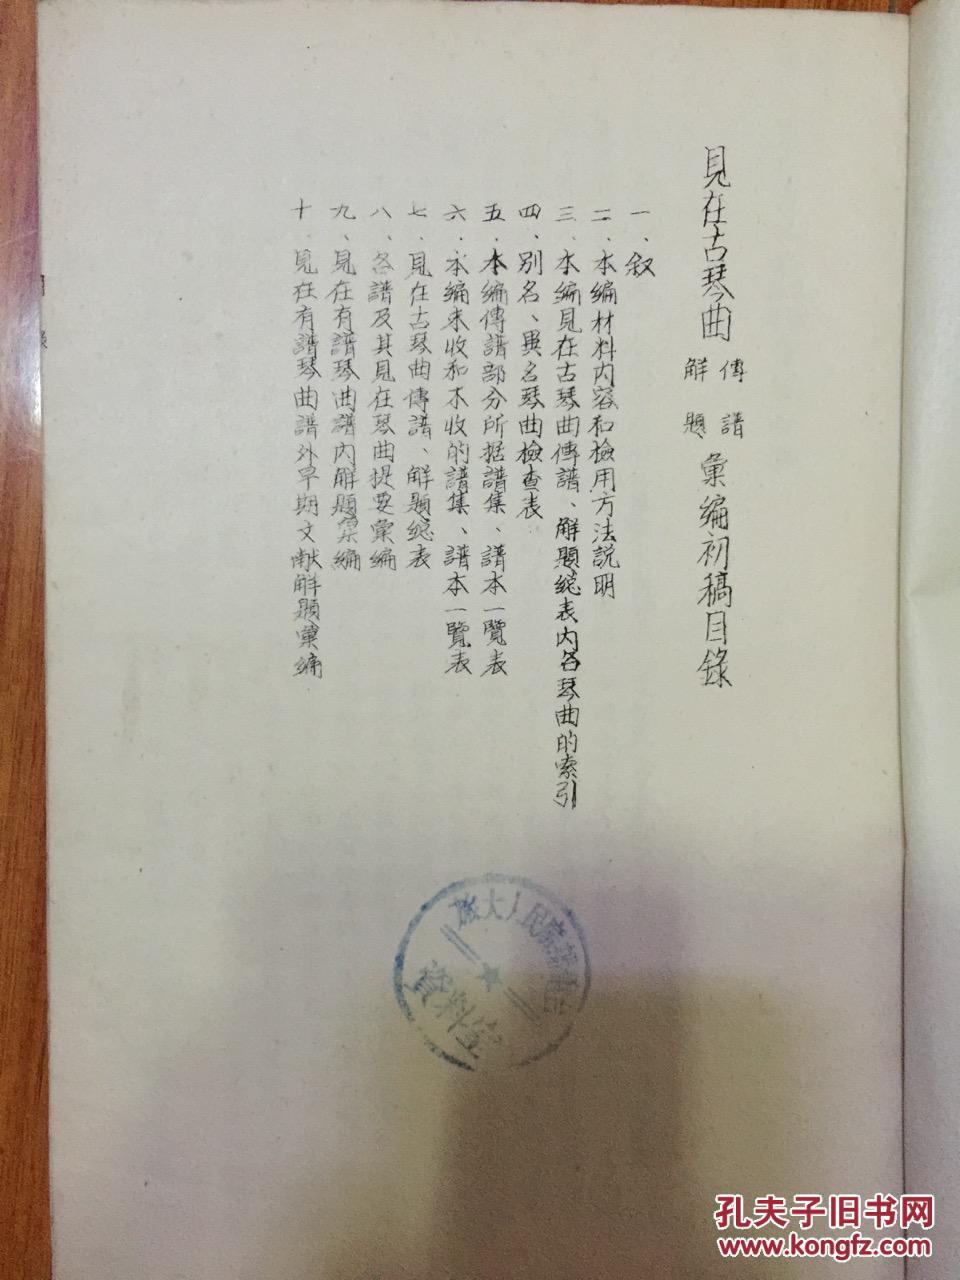 見在古琴曲傳譜解題彙編初稿目錄
一、叙
二、本編材料內容和檢用方法説明
三、本編見在古琴曲傳譜、解題總表內各琴曲的索引
四、別名、異名琴曲檢查表
五、本編傳譜部分所据譜集、譜本一覽表
六、本編未收和不收的譜集、譜本一覽表
七、見在古琴曲傳譜、解題總表
八、各譜及其見在琴曲提要彙編
九、見在有譜琴曲譜內解題彙編
十、見在有譜琴曲譜外早期文献解題彙編
旅大人民廣播電台
資料室
孔夫子旧书网
www.kongfz.com